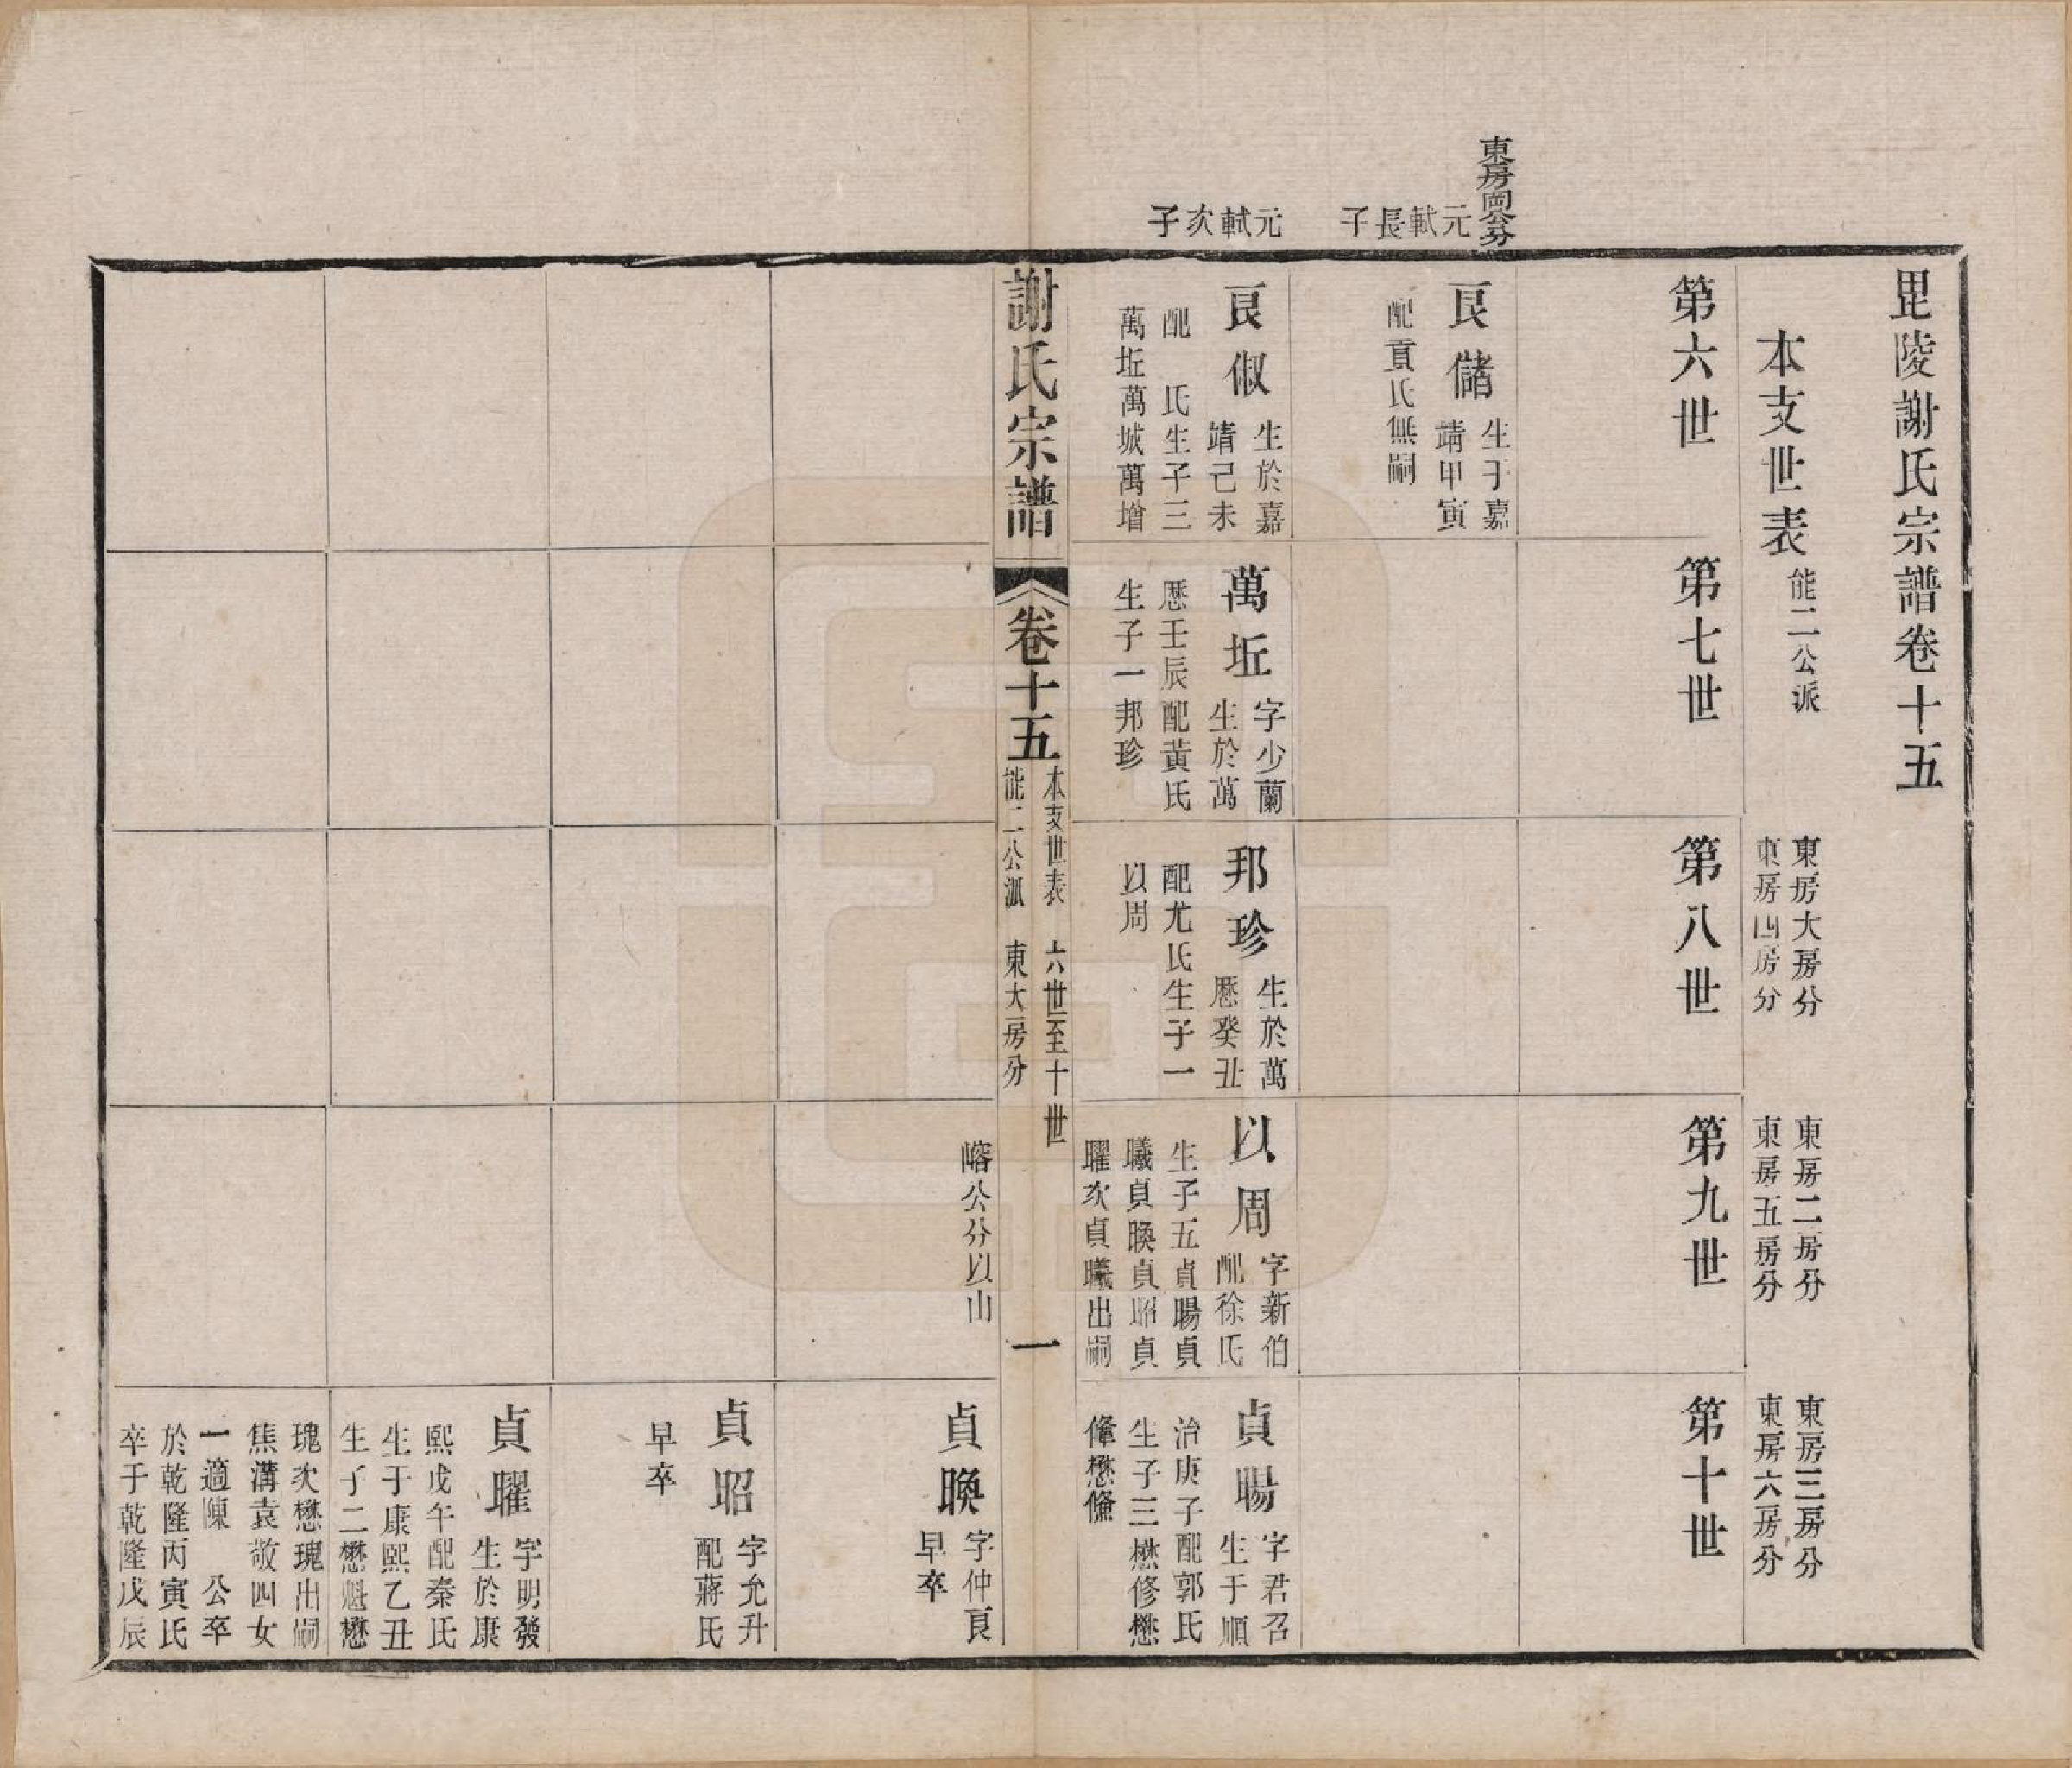 毘陵謝氏宗譜卷十五
本支世表
能二公派
東房大房分
東房四房分
東房二房分
東房五房分
東房三房分
東房六房分
第六世
第七世
第八世
第九世
第十世
東房岡公分
元軾長子
艮儲
生于嘉
靖甲寅
配貢氏無嗣
元軾次子
艮俶
生於嘉
靖己未
配 氏生子三
萬坵萬城萬增
萬坵
字少蘭
生於萬
歷壬辰配黃氏
生子一邦珍
邦珍
生於萬
歷癸丑
配尤氏生子一
以周
以周
字新伯
配徐氏
生子五貞暘貞
曦貞晚貞昭貞
曜次貞曦出嗣
嵱公分以山
貞暘
字君召
生于順
治庚子配郭氏
生子三懋修懋
俸懋儵
謝氏宗譜
卷十五
本支世表 六世至十世
能二公派 東大房分
一
貞晚
字仲艮
早卒
貞昭
字允升
配蔣氏
早卒
貞曜
字明發
生於康
熙戊午配秦氏
生于康熙乙丑
生子二懋魁懋
瑰次懋瑰出嗣
焦溝袁敬四女
一適陳 公卒
於乾隆丙寅氏
卒于乾隆戊辰